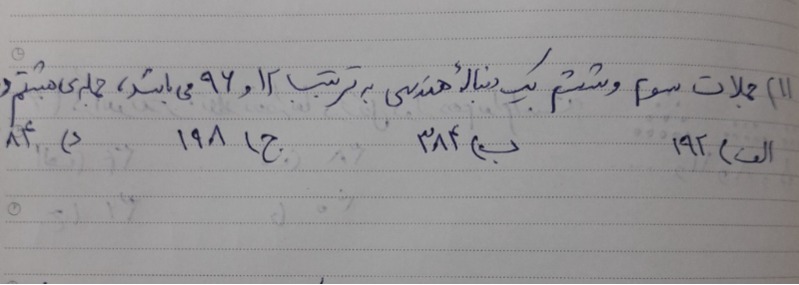 ۱۱) جملات سوم و ششم یک دنبالهٔ هندسی به ترتیب ۱۲ و ۹۶ می باشد، جمله‌ی هشتم
الف) ۱۹۲ ب) ۳۸۴ ج) ۱۹۸ د) ۸۴